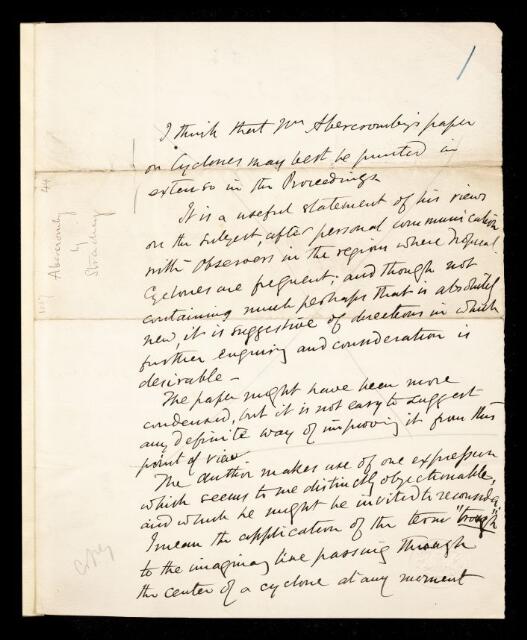 I think that Mr Abercromby's paper
on Cyclones may best be printed in
extenso in the Proceedings
It is a useful statement of his views
on the subject, after personal communication
with Observers in the regions where tropical
Cyclones are frequent; and though not
containing much perhaps that is absolutely
new, it is suggestive of directions in which
further enquiry and consideration is
desirable –
The paper might have been more
condensed, but it is not easy to suggest
any definite way of improving it from this
point of view.
The author makes use of one expression
which seems to me distinctly objectionable,
and which he might be invited to reconsider.
I mean the application of the term "trough"
to the imaginary line passing through
the center of a cyclone at any moment
Abercromby
by
Strachey
44